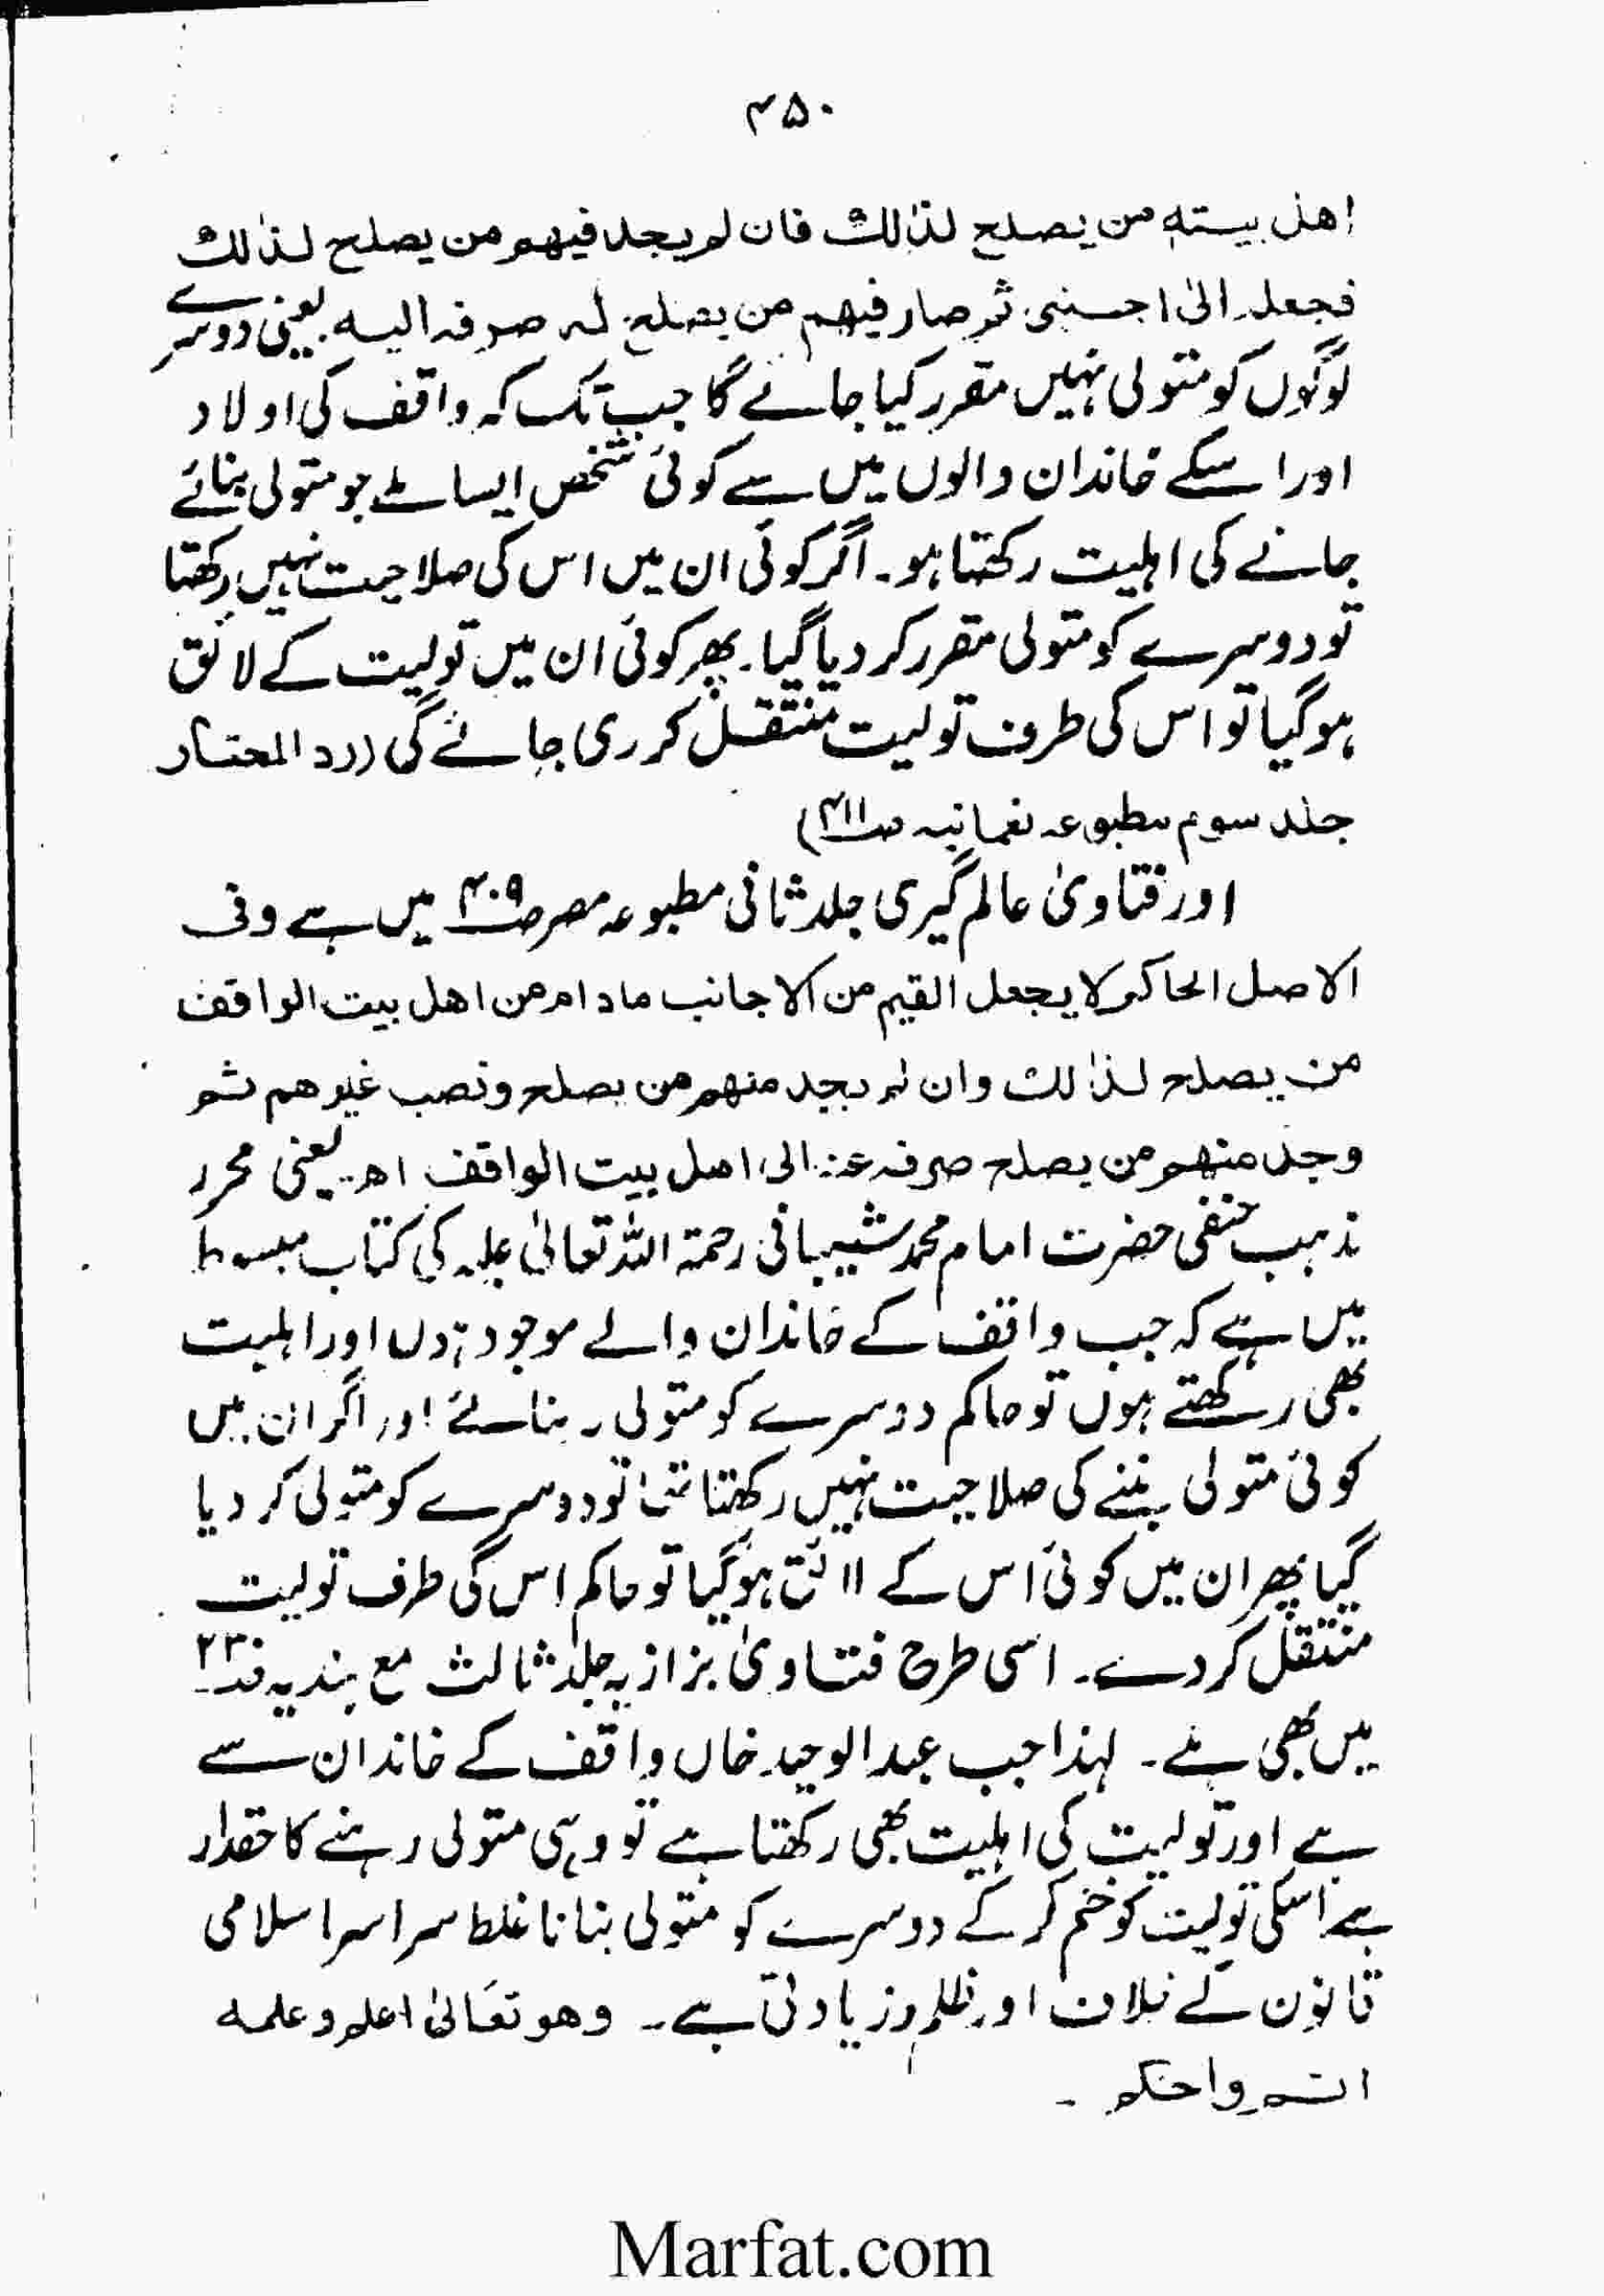 ۴۵۰
اھل بیتہ من یصلح لذٰلک فان لم یجد فیھم من یصلح لذٰلک
فجعلہ الیٰ اجنبی ثم صار فیھم من یصلح لہ صرفہ الیہ۔ یعنی دوسرے
لوگوں کو متولی نہیں مقرر کیا جائے گا جب تک کہ واقف کی اولاد
اور اسکے خاندان والوں میں سے کوئی شخص ایسا ملے جو متولی بنائے
جانے کی اہلیت رکھتا ہو۔ اگر کوئی ان میں اس کی صلاحیت نہیں رکھتا
تو دوسرے کو متولی مقرر کر دیا گیا۔ پھر کوئی ان میں تولیت کے لائق
ہو گیا تو اس کی طرف تولیت منتقل کر دی جائے گی (رد المحتار
جلد سوم مطبوعہ نعمانیہ صـ۴۱۱)
اور فتاویٰ عالم گیری جلد ثانی مطبوعہ مصر صـ۴۰۹ میں ہے وفی
الاصل الحاکم لا یجعل القیم من الاجانب مادام من اھل بیت الواقف
من یصلح لذٰلک وان لم یجد منھم من یصلح ونصب غیرھم ثم
وجد منھم من یصلح صرفہ عنہ الی اھل بیت الواقف اھ۔ یعنی محرر
مذہب حنفی حضرت امام محمد شیبانی رحمۃ اللہ تعالیٰ علیہ کی کتاب مبسوط
میں ہے کہ جب واقف کے خاندان والے موجود ہوں اور اہلیت
بھی رکھتے ہوں تو حاکم دوسرے کو متولی نہ بنائے اور اگر ان میں
کوئی متولی بننے کی صلاحیت نہیں رکھتا تھا تو دوسرے کو متولی کر دیا
گیا پھر ان میں کوئی اس کے لائق ہو گیا تو حاکم اس کی طرف تولیت
منتقل کر دے۔ اسی طرح فتاویٰ بزازیہ جلد ثالث مع ہندیہ
میں بھی ہے۔ لہذا جب عبد الوحید خاں واقف کے خاندان سے
ہے اور تولیت کی اہلیت بھی رکھتا ہے تو وہی متولی رہنے کا حقدار
ہے اسکی تولیت کو ختم کر کے دوسرے کو متولی بنانا غلط سراسر اسلامی
قانون کے خلاف اور ظلم و زیادتی ہے۔ وھو تعالیٰ اعلم وعلمہ
اتم واحکم۔
Marfat.com